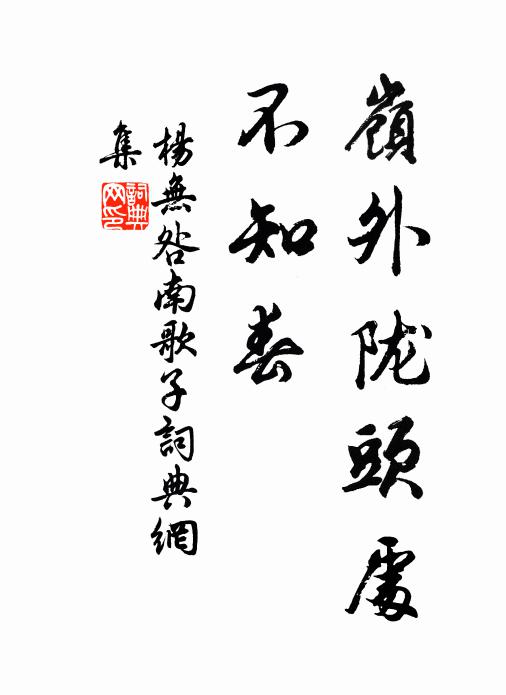 嶺外陇頭處
不知春
楊無咎南歌子詞典網
集
詞典网印